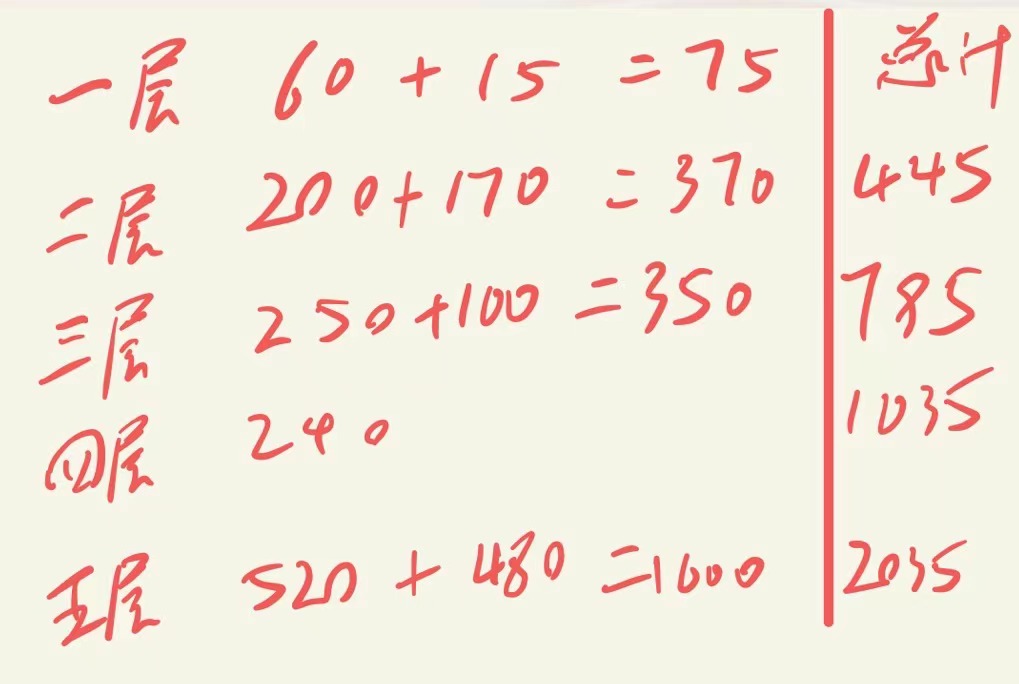 一层 60 + 15 = 75 总计
二层 200+170 = 370 445
三层 250+100 = 350 785
四层 240 1035
五层 520 + 480 =1000 2035